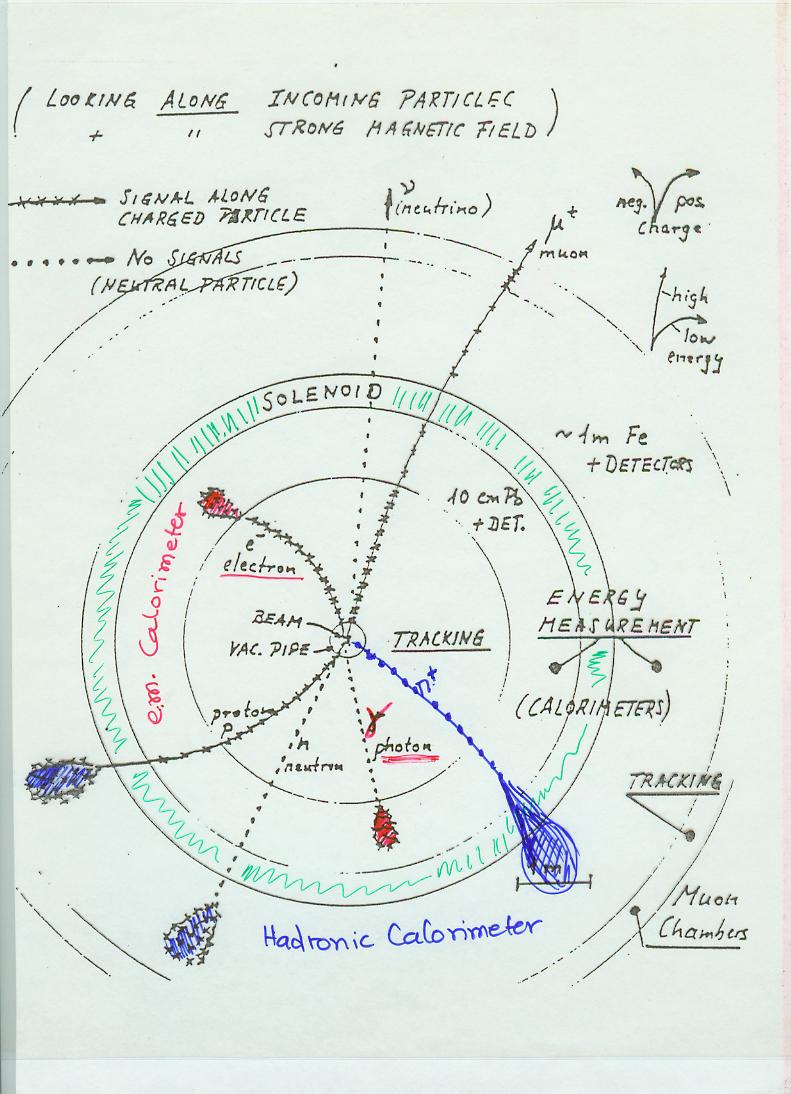 ( LOOKING ALONG INCOMING PARTICLEC
+ " STRONG MAGNETIC FIELD )
SIGNAL ALONG
CHARGED PARTICLE
NO SIGNALS
(NEUTRAL PARTICLE)
ν
(neutrino)
μ+
muon
neg. pos.
charge
high
low
energy
SOLENOID
~1m Fe
+ DETECTORS
10 cm Pb
+ DET.
e.m. Calorimeter
e-
electron
BEAM
VAC. PIPE
TRACKING
ENERGY
MEASUREMENT
(CALORIMETERS)
π+
proton
p
n
neutron
γ
photon
TRACKING
1 m
Muon
Chambers
Hadronic Calorimeter